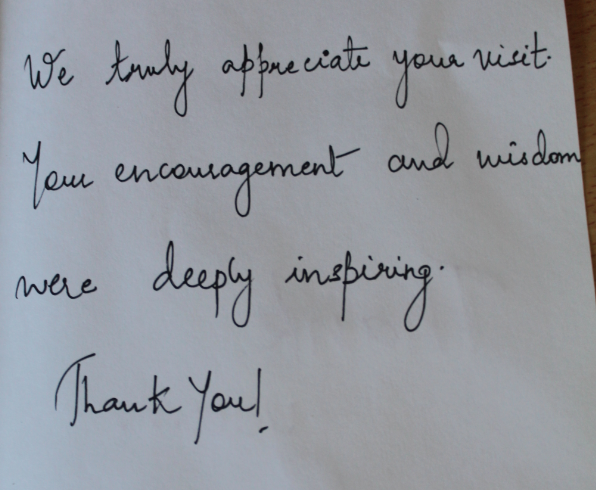 We truly appreciate your visit.
Your encouragement and wisdom
were deeply inspiring.
Thank You!